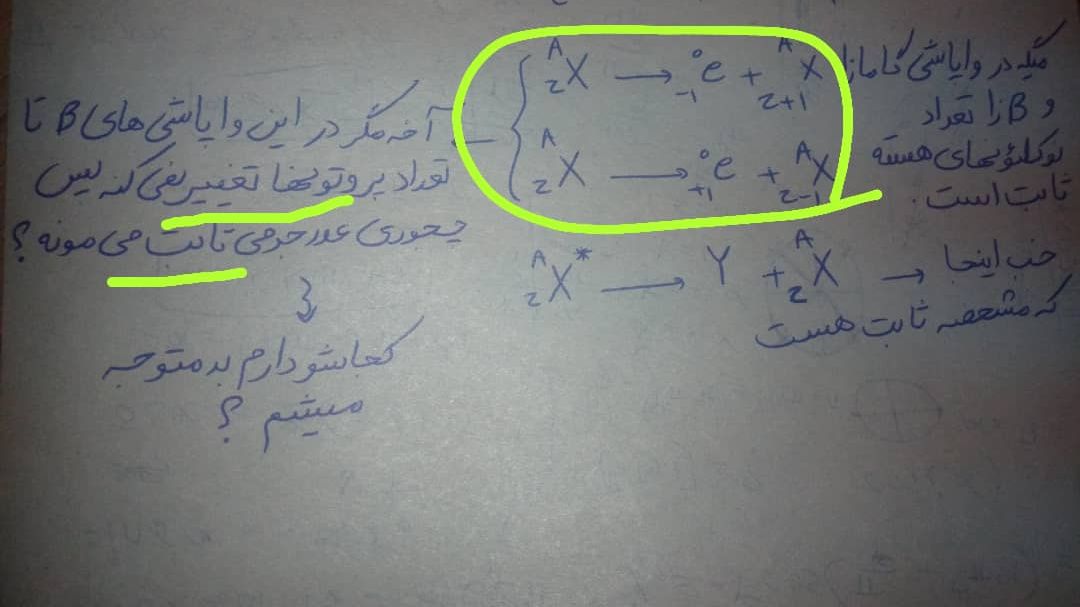 میگه در واپاشی گامازا
و B زا تعداد
نوکلئونهای هسته
ثابت است.
{ ᴬ_Z X → ⁰_-1 e + ᴬ_Z+1 X
ᴬ_Z X → ⁰_+1 e + ᴬ_Z-1 X
آخه مگر در این واپاشی های B تا
تعداد پروتونها تغییر نمی کنه پس
چجوری عدد جرمی ثابت می مونه؟
کجاشو دارم بد متوجه
میشم؟
ᴬ_Z X* → γ + ᴬ_Z X → خب اینجا
که مشخصه ثابت هست